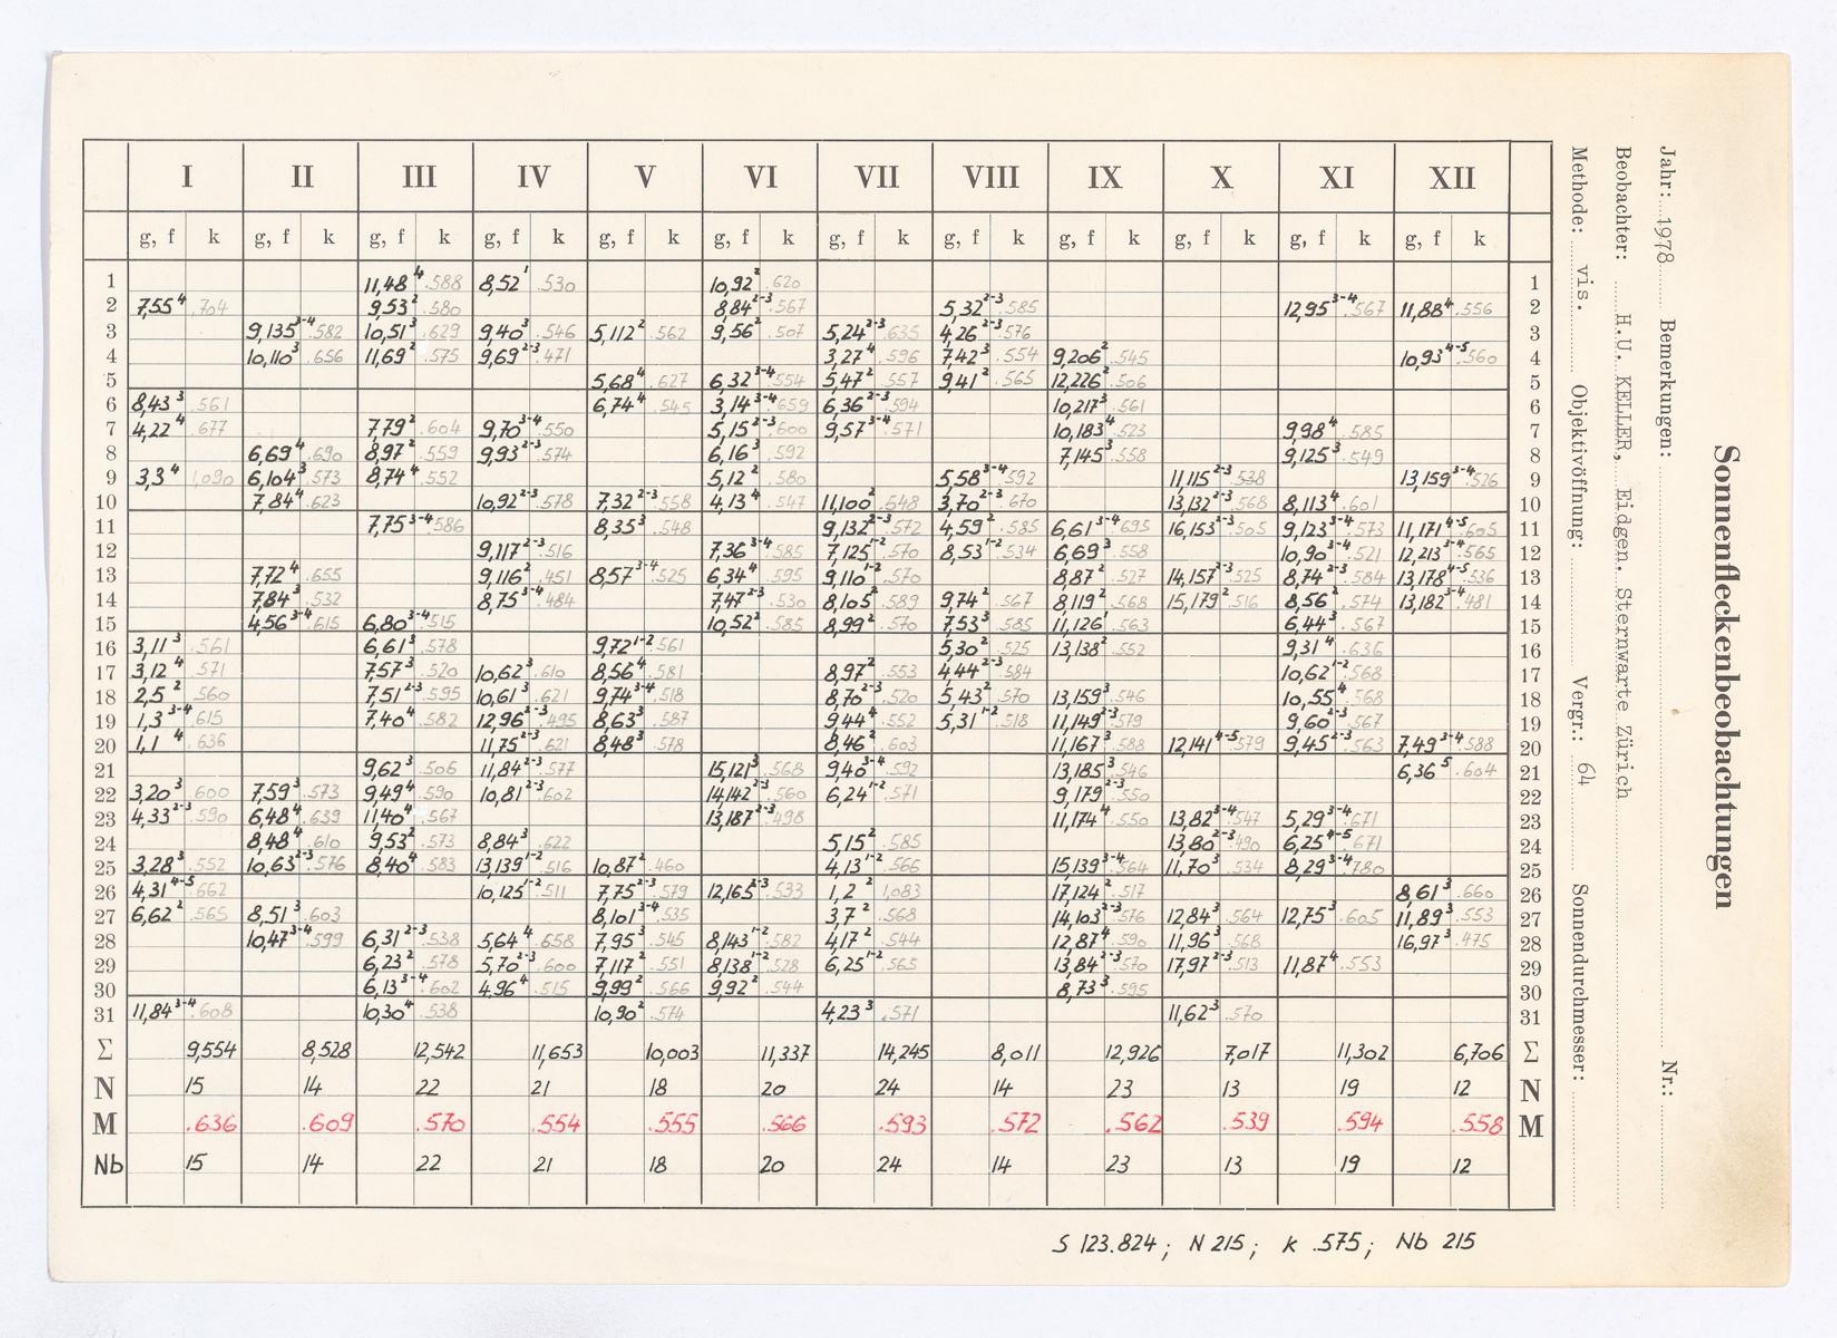 I II III IV V VI VII VIII IX X XI XII
g, f k g, f k g, f k g, f k g, f k g, f k g, f k g, f k g, f k g, f k g, f k g, f k
1 11,48⁴ .588 8,52¹ .530 10,92² .620 1
2 7,55⁴ .704 9,53² .580 8,84²⁻³ .567 5,32²⁻³ .585 12,95³⁻⁴ .567 11,88⁴ .556 2
3 9,135³⁻⁴ .582 10,51³ .629 9,40³ .546 5,112² .562 9,56² .507 5,24²⁻³ .635 4,26²⁻³ .576 3
4 10,110³ .656 11,69² .575 9,69²⁻³ .471 3,27⁴ .596 7,42³ .554 9,206² .545 10,93⁴⁻⁵ .560 4
5 5,68⁴ .627 6,32³⁻⁴ .554 5,47² .557 9,41² .565 12,226² .506 5
6 8,43³ .561 6,74⁴ .545 3,14³⁻⁴ .659 6,36²⁻³ .594 10,217³ .561 6
7 4,22⁴ .677 7,79² .604 9,70³⁻⁴ .550 5,15²⁻³ .600 9,57³⁻⁴ .571 10,183⁴ .523 9,98⁴ .585 7
8 6,69⁴ .690 8,97² .559 9,93²⁻³ .574 6,16³ .592 7,145³ .558 9,125³ .549 8
9 3,3⁴ 1,090 6,104³ .573 8,74⁴ .552 5,12² .580 5,58³⁻⁴ .592 11,115²⁻³ .538 13,159³⁻⁴ .526 9
10 7,84⁴ .623 10,92²⁻³ .578 7,32²⁻³ .558 4,13⁴ .547 11,100² .548 3,70²⁻³ .670 13,132²⁻³ .568 8,113⁴ .601 10
11 7,75³⁻⁴ .586 8,35³ .548 9,132²⁻³ .572 4,59² .585 6,61³⁻⁴ .695 16,153²⁻³ .505 9,123³⁻⁴ .573 11,171⁴⁻⁵ .605 11
12 9,117²⁻³ .516 7,36³⁻⁴ .585 7,125¹⁻² .570 8,53¹⁻² .534 6,69³ .558 10,90³⁻⁴ .521 12,213³⁻⁴ .565 12
13 7,72⁴ .655 9,116² .451 8,57³⁻⁴ .525 6,34⁴ .595 9,110¹⁻² .570 8,87² .527 14,157³⁻² .525 8,74²⁻³ .584 13,178⁴⁻⁵ .536 13
14 7,84³ .532 8,75³⁻⁴ .484 7,47²⁻³ .530 8,105² .589 9,74² .567 8,119² .568 15,179² .516 8,56² .574 13,182³⁻⁴ .481 14
15 4,56³⁻⁴ .615 6,80³⁻⁴ .515 10,52² .585 8,99² .570 7,53³ .585 11,126¹ .563 6,44³ .567 15
16 3,11³ .561 6,61³ .578 9,72¹⁻² .561 5,30² .525 13,138² .552 9,31⁴ .636 16
17 3,12⁴ .571 7,57³ .520 10,62³ .610 8,56⁴ .581 8,97² .553 4,44²⁻³ .584 10,62¹⁻² .568 17
18 2,5² .560 7,51²⁻³ .595 10,61³ .621 9,74³⁻⁴ .518 8,70²⁻³ .520 5,43² .570 13,159³ .546 10,55⁴ .568 18
19 1,3³⁻⁴ .615 7,40⁴ .582 12,96²⁻³ .495 8,63³ .587 9,44⁴ .552 5,31¹⁻² .518 11,149²⁻³ .579 9,60²⁻³ .567 19
20 1,1⁴ .636 11,75²⁻³ .621 8,48³ .578 8,46² .603 11,167³ .588 12,141⁴⁻⁵ .579 9,45²⁻³ .563 7,49³⁻⁴ .588 20
21 9,62³ .506 11,84²⁻³ .577 15,121³ .568 9,40³⁻⁴ .592 13,185³ .546 6,36⁵ .604 21
22 3,20³ .600 7,59³ .573 9,49⁴ .590 10,81²⁻³ .602 14,142²⁻³ .560 6,24¹⁻² .571 9,179²⁻³ .550 22
23 4,33²⁻³ .590 6,48⁴ .639 11,40⁴ .567 13,187²⁻³ .498 11,174⁴ .550 13,82³⁻⁴ .547 5,29³⁻⁴ .671 23
24 8,48⁴ .610 9,53² .573 8,84³ .622 5,15² .585 13,80²⁻³ .490 6,25⁴⁻⁵ .671 24
25 3,28³ .552 10,63²⁻³ .576 8,40⁴ .583 13,139¹⁻² .516 10,87² .460 4,13¹⁻² .566 15,139³⁻⁴ .564 11,70³ .534 8,29³⁻⁴ .780 25
26 4,31⁴⁻⁵ .662 10,125¹⁻² .511 7,75²⁻³ .579 12,165²⁻³ .533 1,2² 1,083 17,124² .517 8,61³ .660 26
27 6,62² .565 8,51³ .603 8,101³⁻⁴ .535 3,7² .568 14,103²⁻³ .576 12,84³ .564 12,75³ .605 11,89³ .553 27
28 10,47³⁻⁴ .599 6,31²⁻³ .538 5,64⁴ .658 7,95³ .545 8,143¹⁻² .582 4,17² .544 12,87⁴ .590 11,96³ .568 16,97³ .475 28
29 6,23² .578 5,70²⁻³ .600 7,117² .551 8,138¹⁻² .528 6,25¹⁻² .565 13,84²⁻³ .570 17,97²⁻³ .513 11,87⁴ .553 29
30 6,13³⁻⁴ .602 4,96⁴ .515 9,99² .566 9,92² .544 8,73³ .595 30
31 11,84³⁻⁴ .608 10,30⁴ .538 10,90² .574 4,23³ .571 11,62³ .570 31
Σ 9,554 8,528 12,542 11,653 10,003 11,337 14,245 8,011 12,926 7,017 11,302 6,706 Σ
N 15 14 22 21 18 20 24 14 23 13 19 12 N
M .636 .609 .570 .554 .555 .566 .593 .572 .562 .539 .594 .558 M
Nb 15 14 22 21 18 20 24 14 23 13 19 12
S 123.824; N 215; K .575; Nb 215
Sonnenfleckenbeobachtungen
Jahr: 1978 Bemerkungen: Nr.:
Beobachter: H.U. KELLER, Eidgen. Sternwarte Zürich
Methode: vis. Objektivöffnung: Vergr.: 64 Sonnendurchmesser: